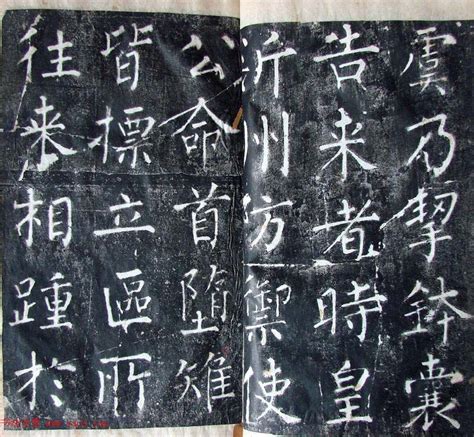 虞乃挈鉢囊
告来者時皇
沂州防禦使
公命首墮雉
皆摽立區所
往来相踵於